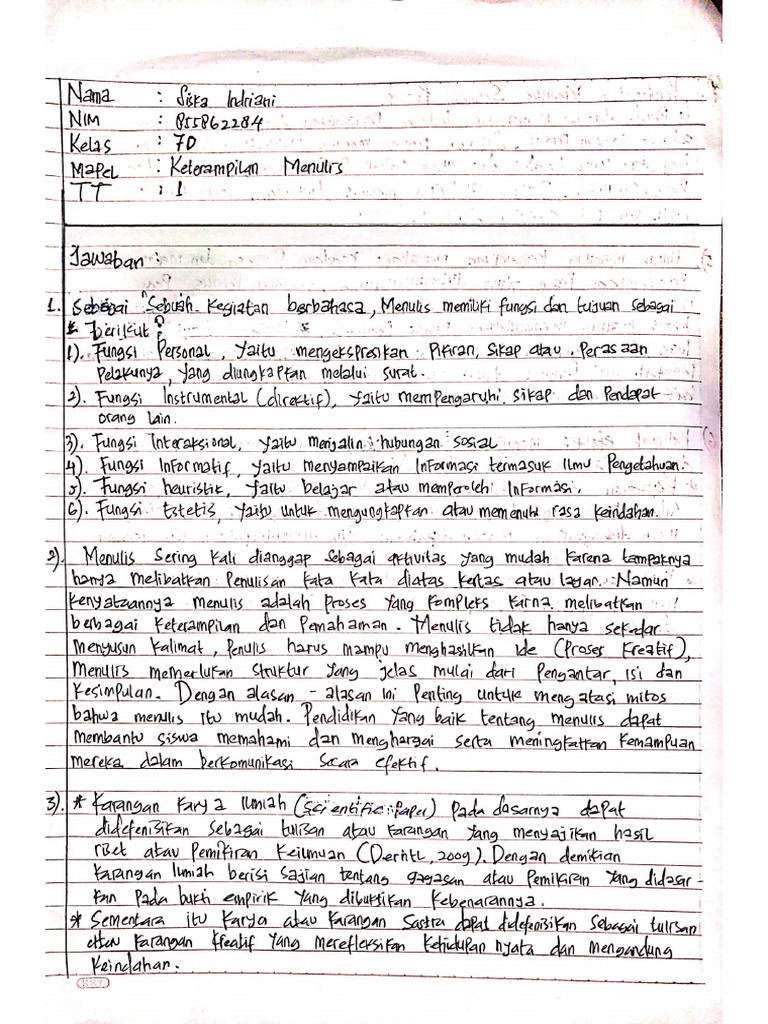 Nama : Siska Indriani
NIM : 855862284
Kelas : 7D
Mapel : Keterampilan Menulis
TT : 1
Jawaban :
1. Sebagai Sebuah Kegiatan berbahasa, Menulis memiliki fungsi dan tujuan sebagai
berikut :
1). Fungsi Personal, yaitu mengekspresikan Pikiran, Sikap atau Perasaan
Pelakunya, yang diungkapkan melalui surat.
2). Fungsi Instrumental (direktif), yaitu mempengaruhi sikap dan Pendapat
orang lain.
3). Fungsi Interaksional, yaitu menjalin hubungan sosial
4). Fungsi Informatif, yaitu menyampaikan Informasi termasuk Ilmu Pengetahuan.
5). Fungsi heuristik, yaitu belajar atau memperolehi Informasi.
6). Fungsi Estetis, yaitu untuk mengungkapkan atau memenuhi rasa keindahan.
2). Menulis Sering kali dianggap sebagai aktivitas yang mudah karena tampaknya
hanya melibatkan Penulisan kata kata diatas kertas atau layar. Namun
kenyataannya menulis adalah proses yang kompleks karna melibatkan
berbagai keterampilan dan Pemahaman. Menulis tidak hanya sekadar
menyusun kalimat, Penulis harus mampu menghasilkan ide (Proses Kreatif),
Menulis memerlukan struktur yang jelas mulai dari Pengantar, isi dan
Kesimpulan. Dengan alasan - alasan ini Penting untuk mengatasi mitos
bahwa menulis itu mudah. Pendidikan yang baik tentang menulis dapat
membantu siswa memahami dan menghargai serta meningkatkan kemampuan
mereka dalam berkomunikasi secara efektif.
3). * Karangan Karya Ilmiah (Scientific Paper) Pada dasarnya dapat
didefenisikan sebagai tulisan atau karangan yang menyajikan hasil
riset atau Pemikiran Keilmuan (Derhtl, 2009). Dengan demikian
karangan Ilmiah berisi sajian tentang gagasan atau Pemikiran yang didasar-
kan Pada bukti empirik yang dibuktikan kebenarannya.
* Sementara itu karya atau karangan Sastra dapat didefenisikan sebagai tulisan
atau karangan kreatif yang merefleksikan kehidupan nyata dan mengandung
keindahan.
KKY